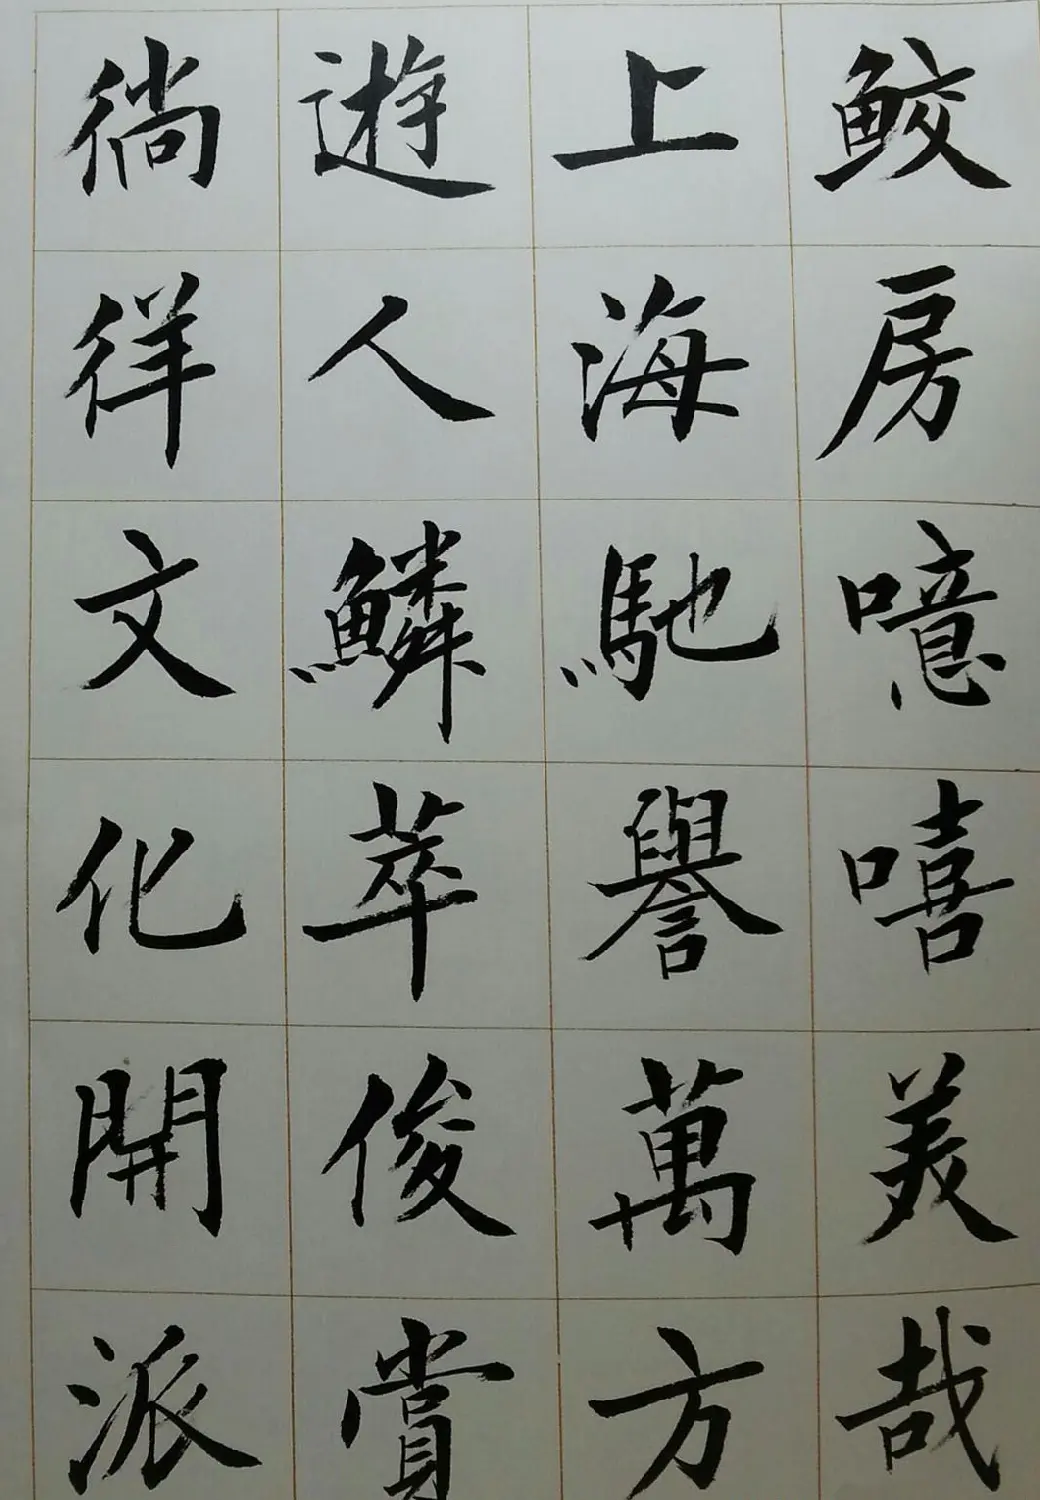 鮫房噫嘻美哉
上海馳譽萬方
遊人鱗萃俊賞
徜徉文化開派